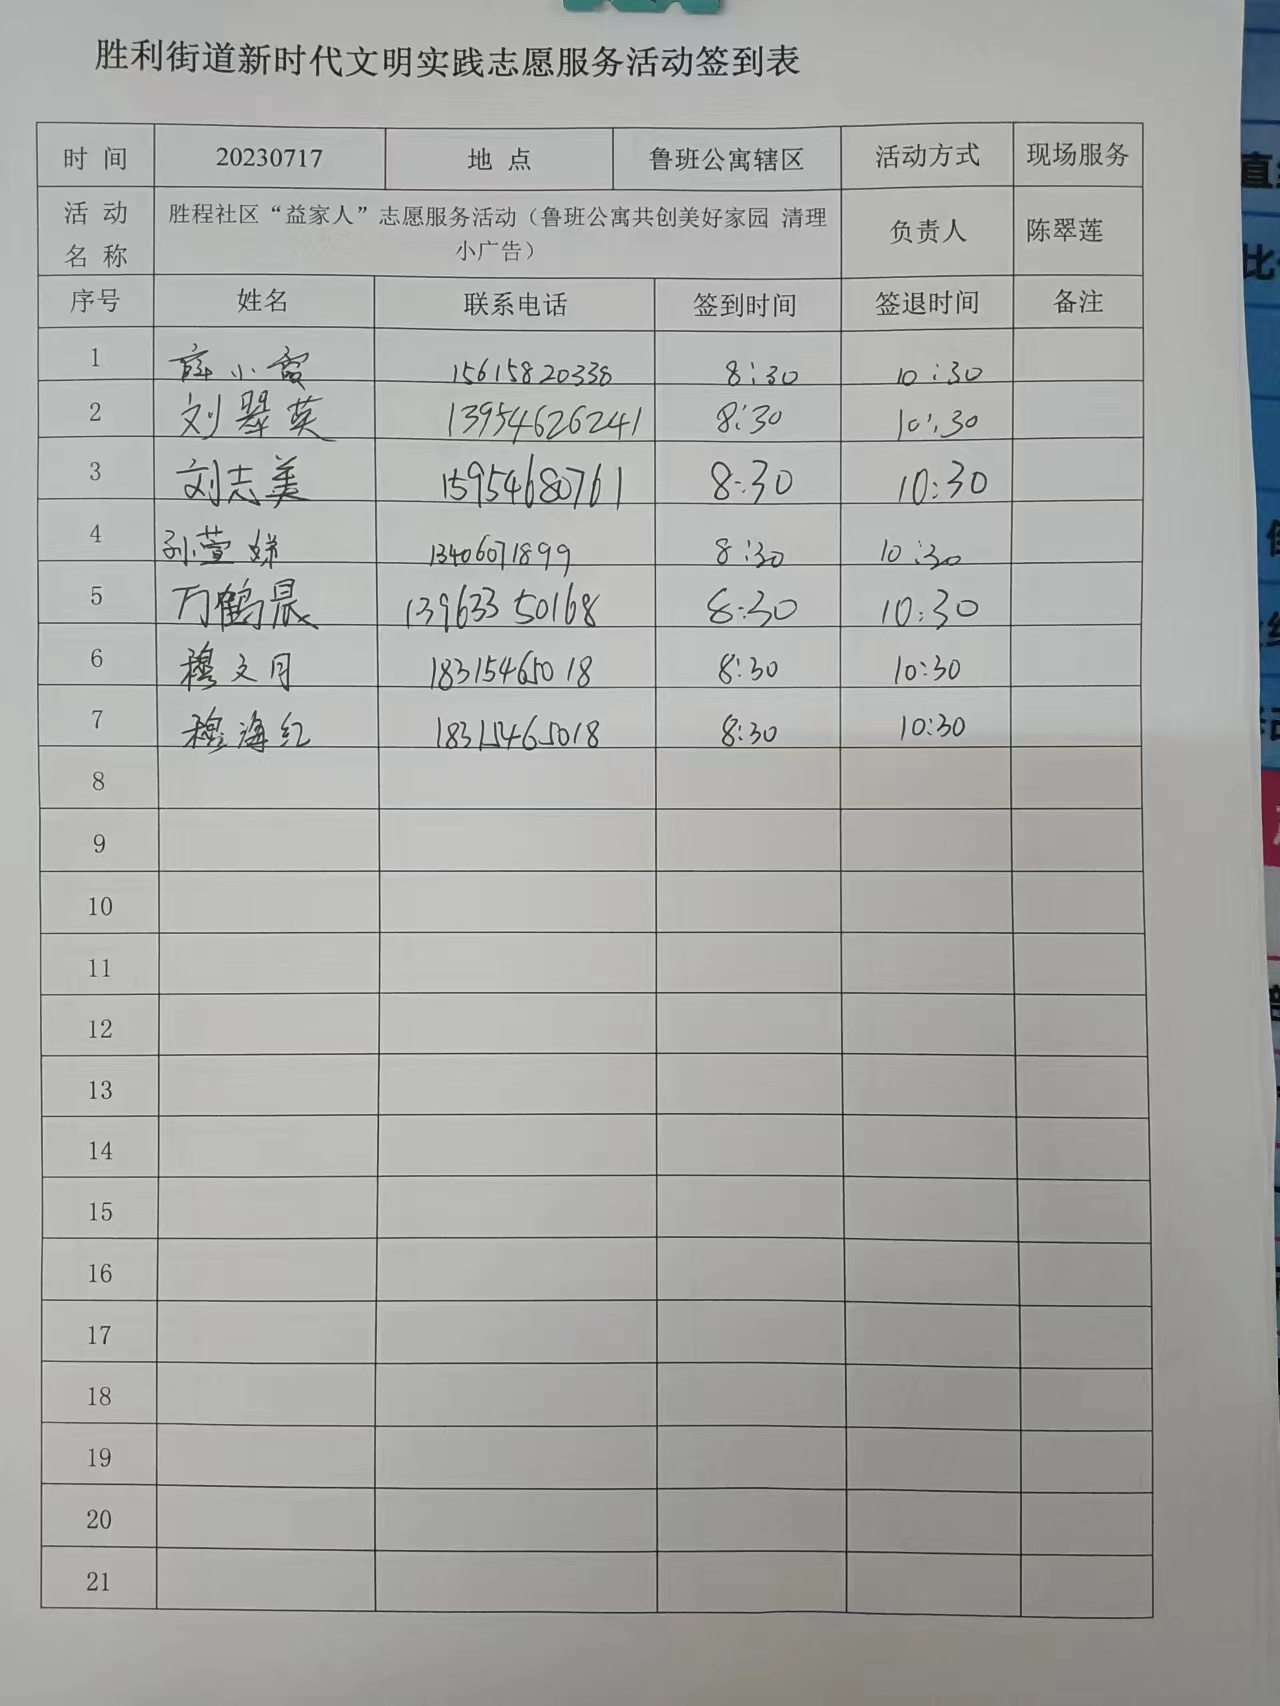 胜利街道新时代文明实践志愿服务活动签到表
时 间 20230717 地 点 鲁班公寓辖区 活动方式 现场服务
活 动 名 称 胜程社区“益家人”志愿服务活动（鲁班公寓共创美好家园 清理小广告） 负责人 陈翠莲
序号 姓名 联系电话 签到时间 签退时间 备注
1 薛小霞 15615820338 8:30 10:30
2 刘翠英 13954626241 8:30 10:30
3 刘志美 15954680761 8:30 10:30
4 孙萱娣 13406071899 8:30 10:30
5 万鹤晨 13963350168 8:30 10:30
6 穆文月 18315465018 8:30 10:30
7 穆海红 18315465018 8:30 10:30
8
9
10
11
12
13
14
15
16
17
18
19
20
21